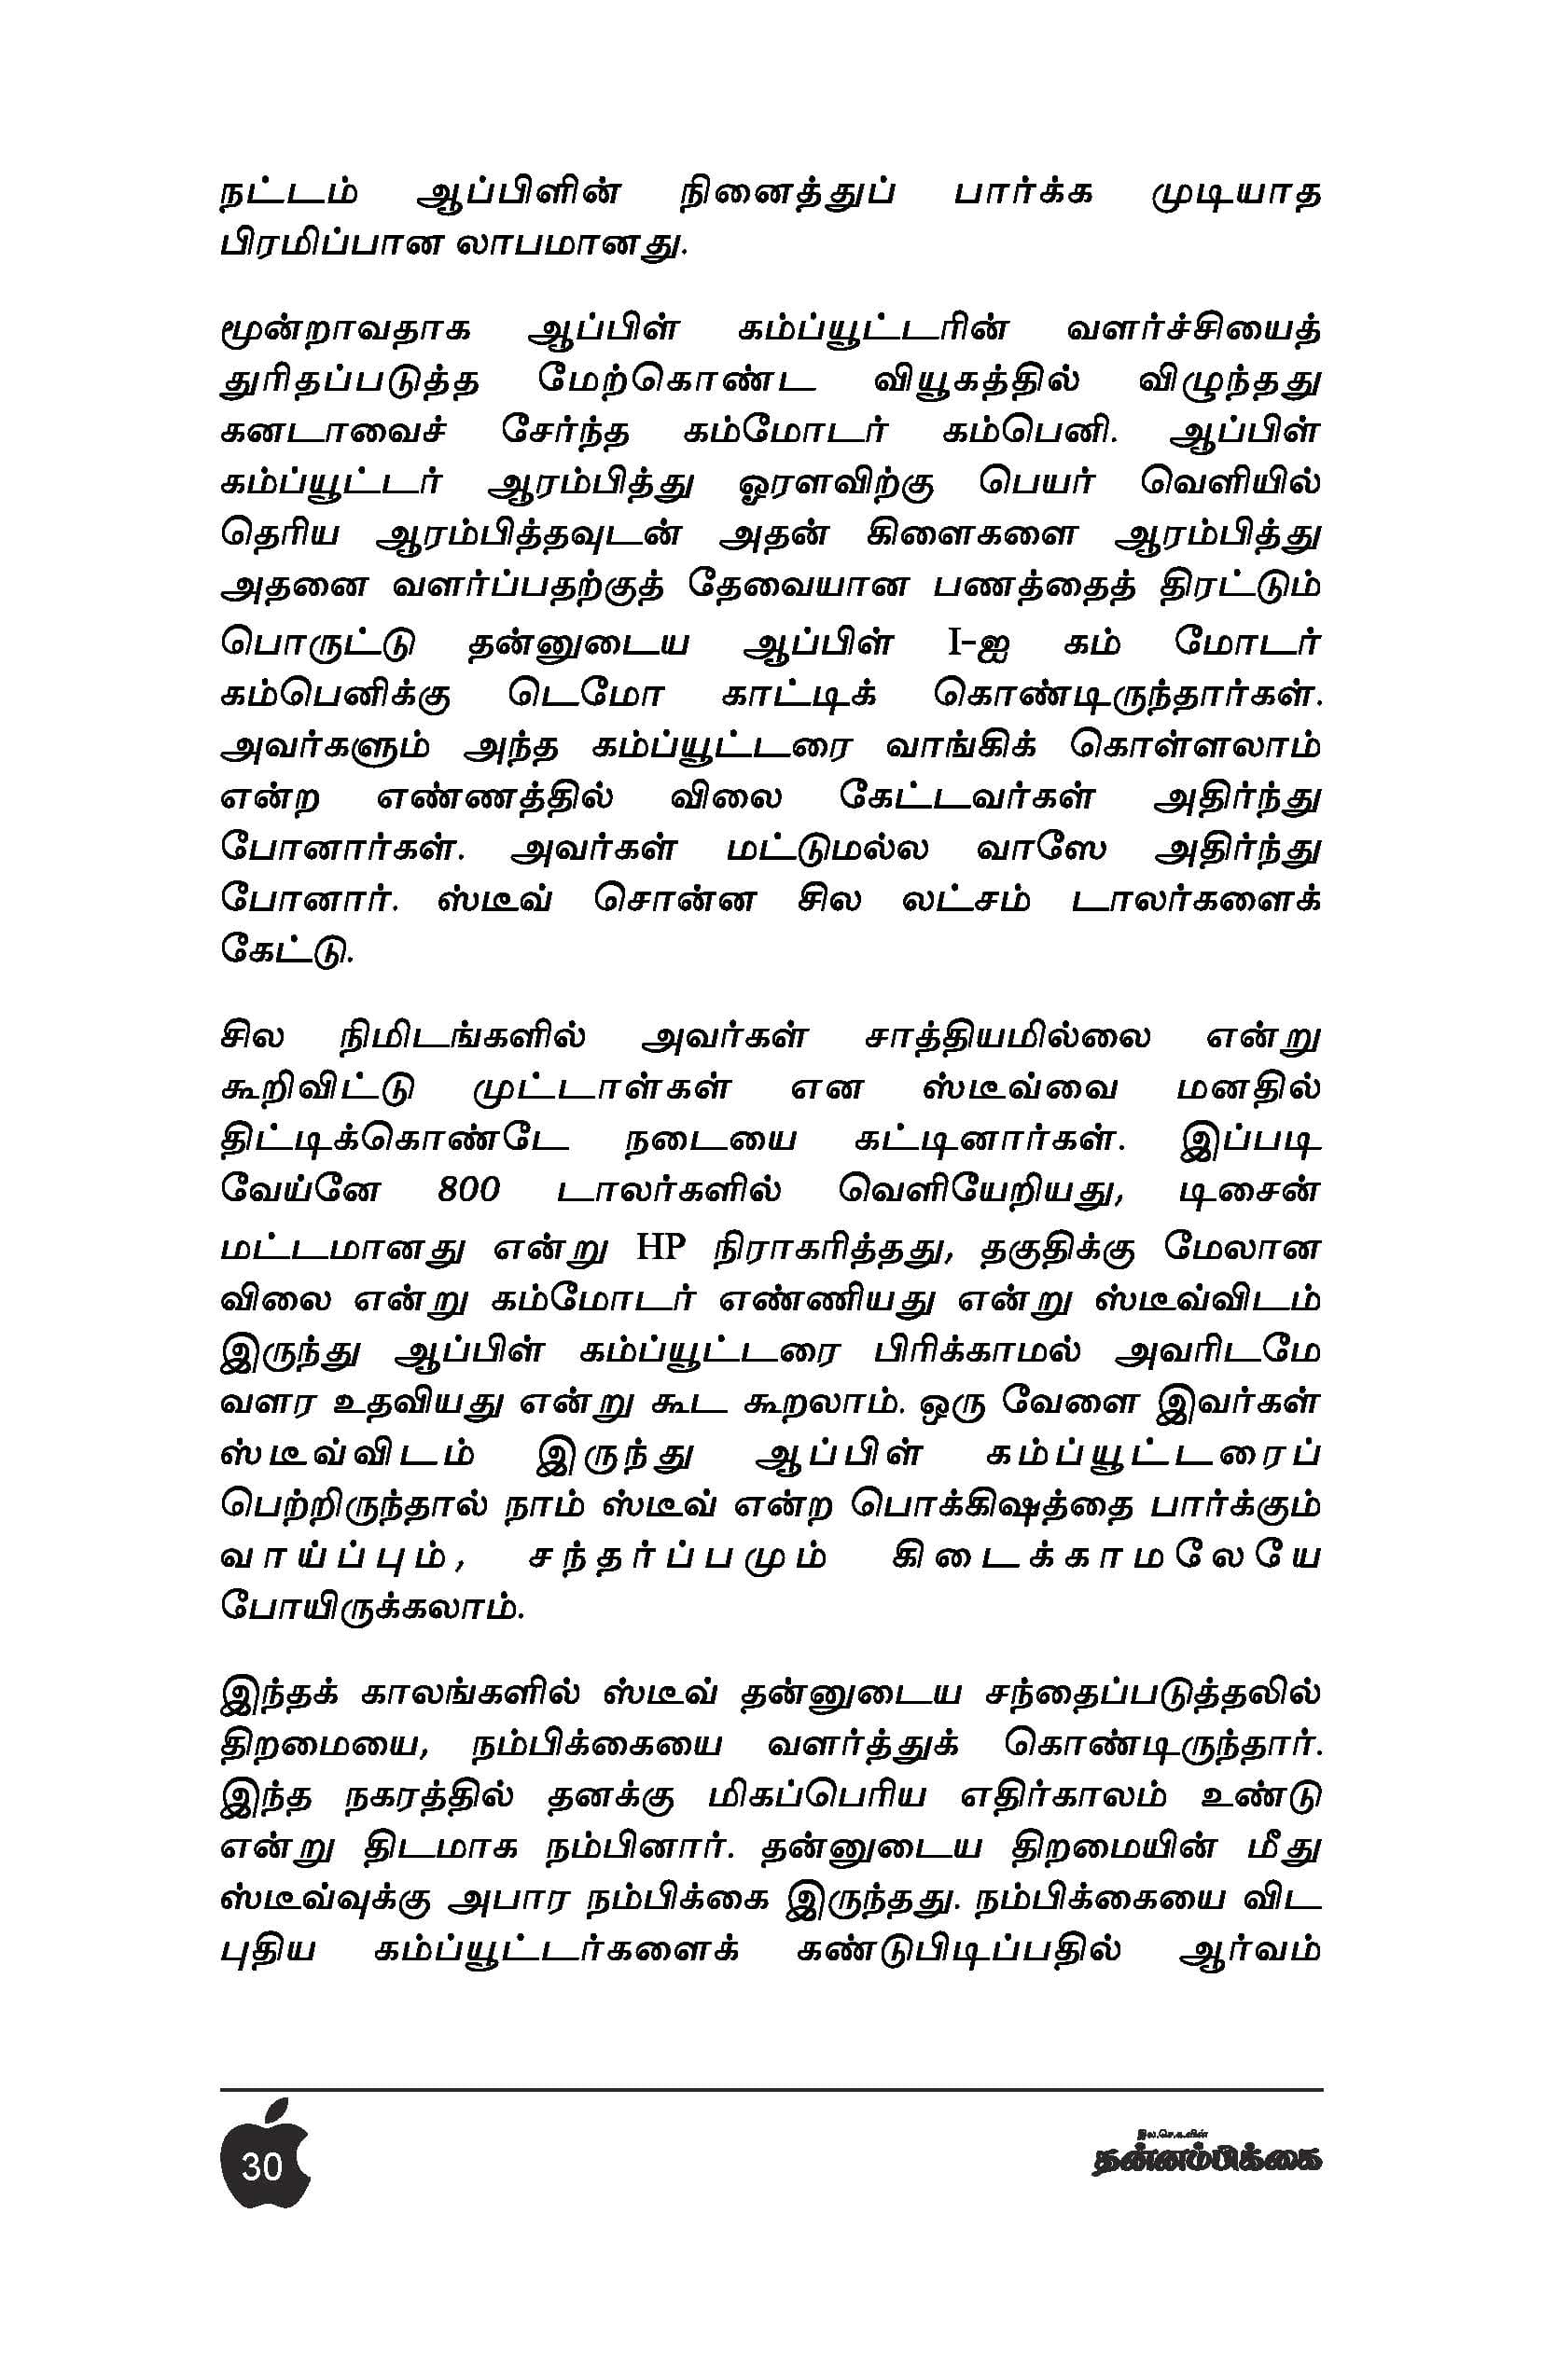 நட்டம் ஆப்பிளின் நினைத்துப் பார்க்க முடியாத
பிரமிப்பான லாபமானது.
மூன்றாவதாக ஆப்பிள் கம்ப்யூட்டரின் வளர்ச்சியைத்
துரிதப்படுத்த மேற்கொண்ட வியூகத்தில் விழுந்தது
கனடாவைச் சேர்ந்த கம்மோடர் கம்பெனி. ஆப்பிள்
கம்ப்யூட்டர் ஆரம்பித்து ஓரளவிற்கு பெயர் வெளியில்
தெரிய ஆரம்பித்தவுடன் அதன் கிளைகளை ஆரம்பித்து
அதனை வளர்ப்பதற்குத் தேவையான பணத்தைத் திரட்டும்
பொருட்டு தன்னுடைய ஆப்பிள் I-ஐ கம் மோடர்
கம்பெனிக்கு டெமோ காட்டிக் கொண்டிருந்தார்கள்.
அவர்களும் அந்த கம்ப்யூட்டரை வாங்கிக் கொள்ளலாம்
என்ற எண்ணத்தில் விலை கேட்டவர்கள் அதிர்ந்து
போனார்கள். அவர்கள் மட்டுமல்ல வாஸே அதிர்ந்து
போனார். ஸ்டீவ் சொன்ன சில லட்சம் டாலர்களைக்
கேட்டு.
சில நிமிடங்களில் அவர்கள் சாத்தியமில்லை என்று
கூறிவிட்டு முட்டாள்கள் என ஸ்டீவ்வை மனதில்
திட்டிக்கொண்டே நடையை கட்டினார்கள். இப்படி
வேய்னே 800 டாலர்களில் வெளியேறியது, டிசைன்
மட்டமானது என்று HP நிராகரித்தது, தகுதிக்கு மேலான
விலை என்று கம்மோடர் எண்ணியது என்று ஸ்டீவ்விடம்
இருந்து ஆப்பிள் கம்ப்யூட்டரை பிரிக்காமல் அவரிடமே
வளர உதவியது என்று கூட கூறலாம். ஒரு வேளை இவர்கள்
ஸ்டீவ்விடம் இருந்து ஆப்பிள் கம்ப்யூட்டரைப்
பெற்றிருந்தால் நாம் ஸ்டீவ் என்ற பொக்கிஷத்தை பார்க்கும்
வாய்ப்பும், சந்தர்ப்பமும் கிடைக்காமலேயே
போயிருக்கலாம்.
இந்தக் காலங்களில் ஸ்டீவ் தன்னுடைய சந்தைப்படுத்தலில்
திறமையை, நம்பிக்கையை வளர்த்துக் கொண்டிருந்தார்.
இந்த நகரத்தில் தனக்கு மிகப்பெரிய எதிர்காலம் உண்டு
என்று திடமாக நம்பினார். தன்னுடைய திறமையின் மீது
ஸ்டீவ்வுக்கு அபார நம்பிக்கை இருந்தது. நம்பிக்கையை விட
புதிய கம்ப்யூட்டர்களைக் கண்டுபிடிப்பதில் ஆர்வம்
30
இல.செ.க.வின்
தன்னம்பிக்கை